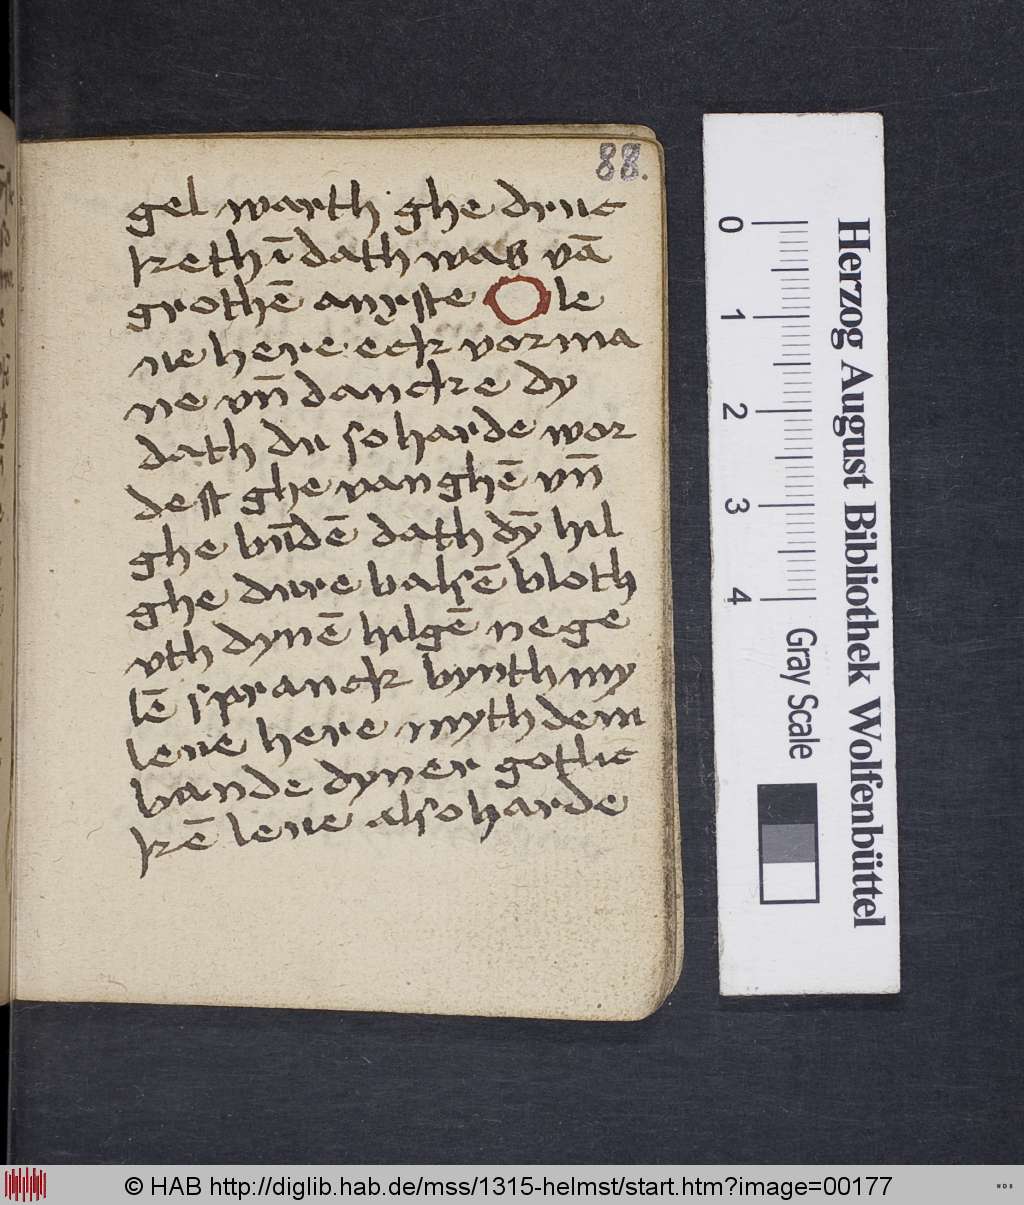 88.
gel warth ghe druc
keth ī dath was vā
grothē anxste O le
ue here eck vorma
ne vn̄ dancke dy
dath du so harde wor
dest ghe vanghē vn̄
ghe bn̄dē dath dȳ hil
ghe dure balsē bloth
vth dynē hilgē nege
lē spranck bynth my
leue here myth dem
bande dyner gotlic
kē leue also harde
0
1
2
3
4
Gray Scale
Herzog August Bibliothek Wolfenbüttel
© HAB http://diglib.hab.de/mss/1315-helmst/start.htm?image=00177